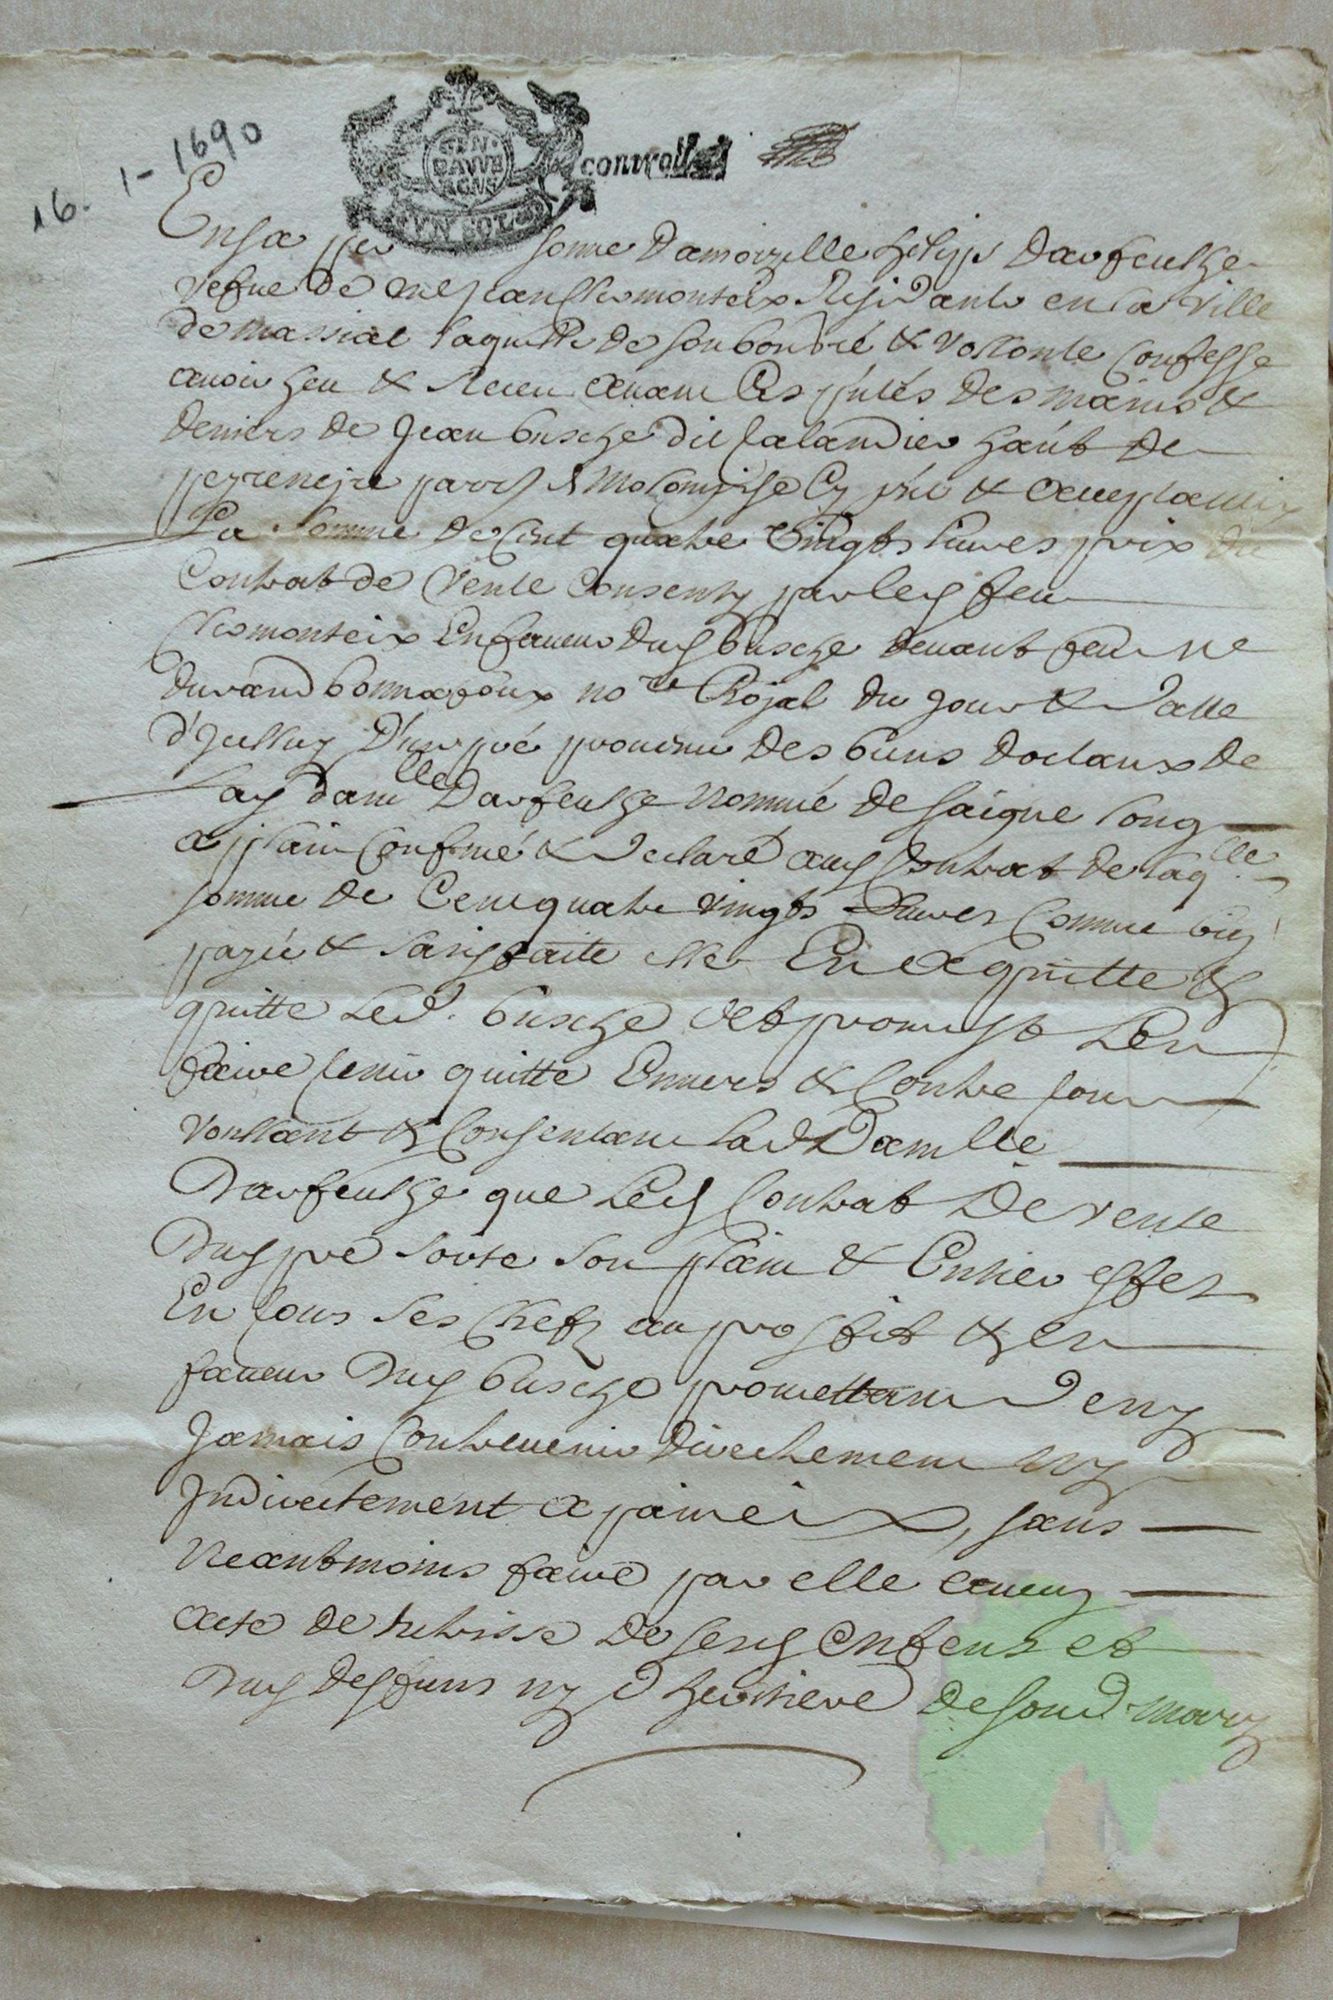 16. 1-1690
GEN. DAVVERGNE
VN SOL
controlle
En sa personne Damoizelle Darfeulhe
vefue de me Jean Chesmonteix Residante en la ville
de massiac laquelle de son bon gré & vollonté confesse
auoir heu & Receu auant ces pntes des mains &
deniers de Jean busche dit Calandier haut de
peyreneire parr molompise cy pnt & acceptant
La somme de Cent quatre vingts liures prix du
Contrat de Vente Consenty par led feu
Chesmonteix En faueur dud busche deuant feu me
durand bonnafoux nore Royal du jour & datte
d'Jcelluy D'un pré prouenu des biens dotaux de
lad damlle Darfeulhe Nommé de saigne long
a plain Confiné & declaré aud Contrat de laqlle
somme de Cent quatre vingts Liures Comme bien
payée & satisfaite elle En a quitté &
quitte Led. busche et promist L'en
faire tenir quitte Enuers & Contre tous
voullant & Consentant lad Damlle
Darfeulhe que Led Contrat De vente
Dud pré sorte son plain & Entier effet
En tous ses Chefz au proffit & en
faueur Dud busche promettant D'eny
Jamais Contreuenir directement ny
Jndirectement a paine , sans
Neantmoins faire par elle aucun
acte de de sesd Enfens et
Dud deffunt ny d'heritiere de sond mary